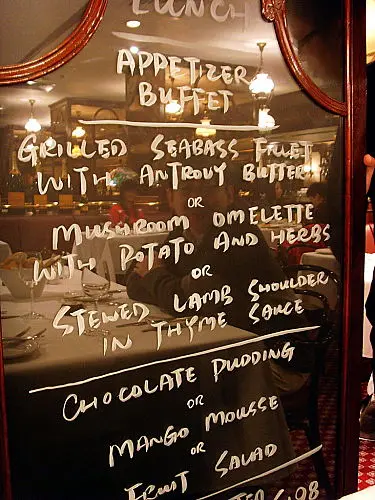 LUNCH
APPETIZER
BUFFET
GRILLED SEABASS FILLET
WITH ANTROUY BUTTER
OR
MUSHROOM OMELETTE
WITH POTATO AND HERBS
OR
STEWED LAMB SHOULDER
IN THYME SAUCE
CHOCOLATE PUDDING
OR
MANGO MOUSSE
OR
FRUIT SALAD